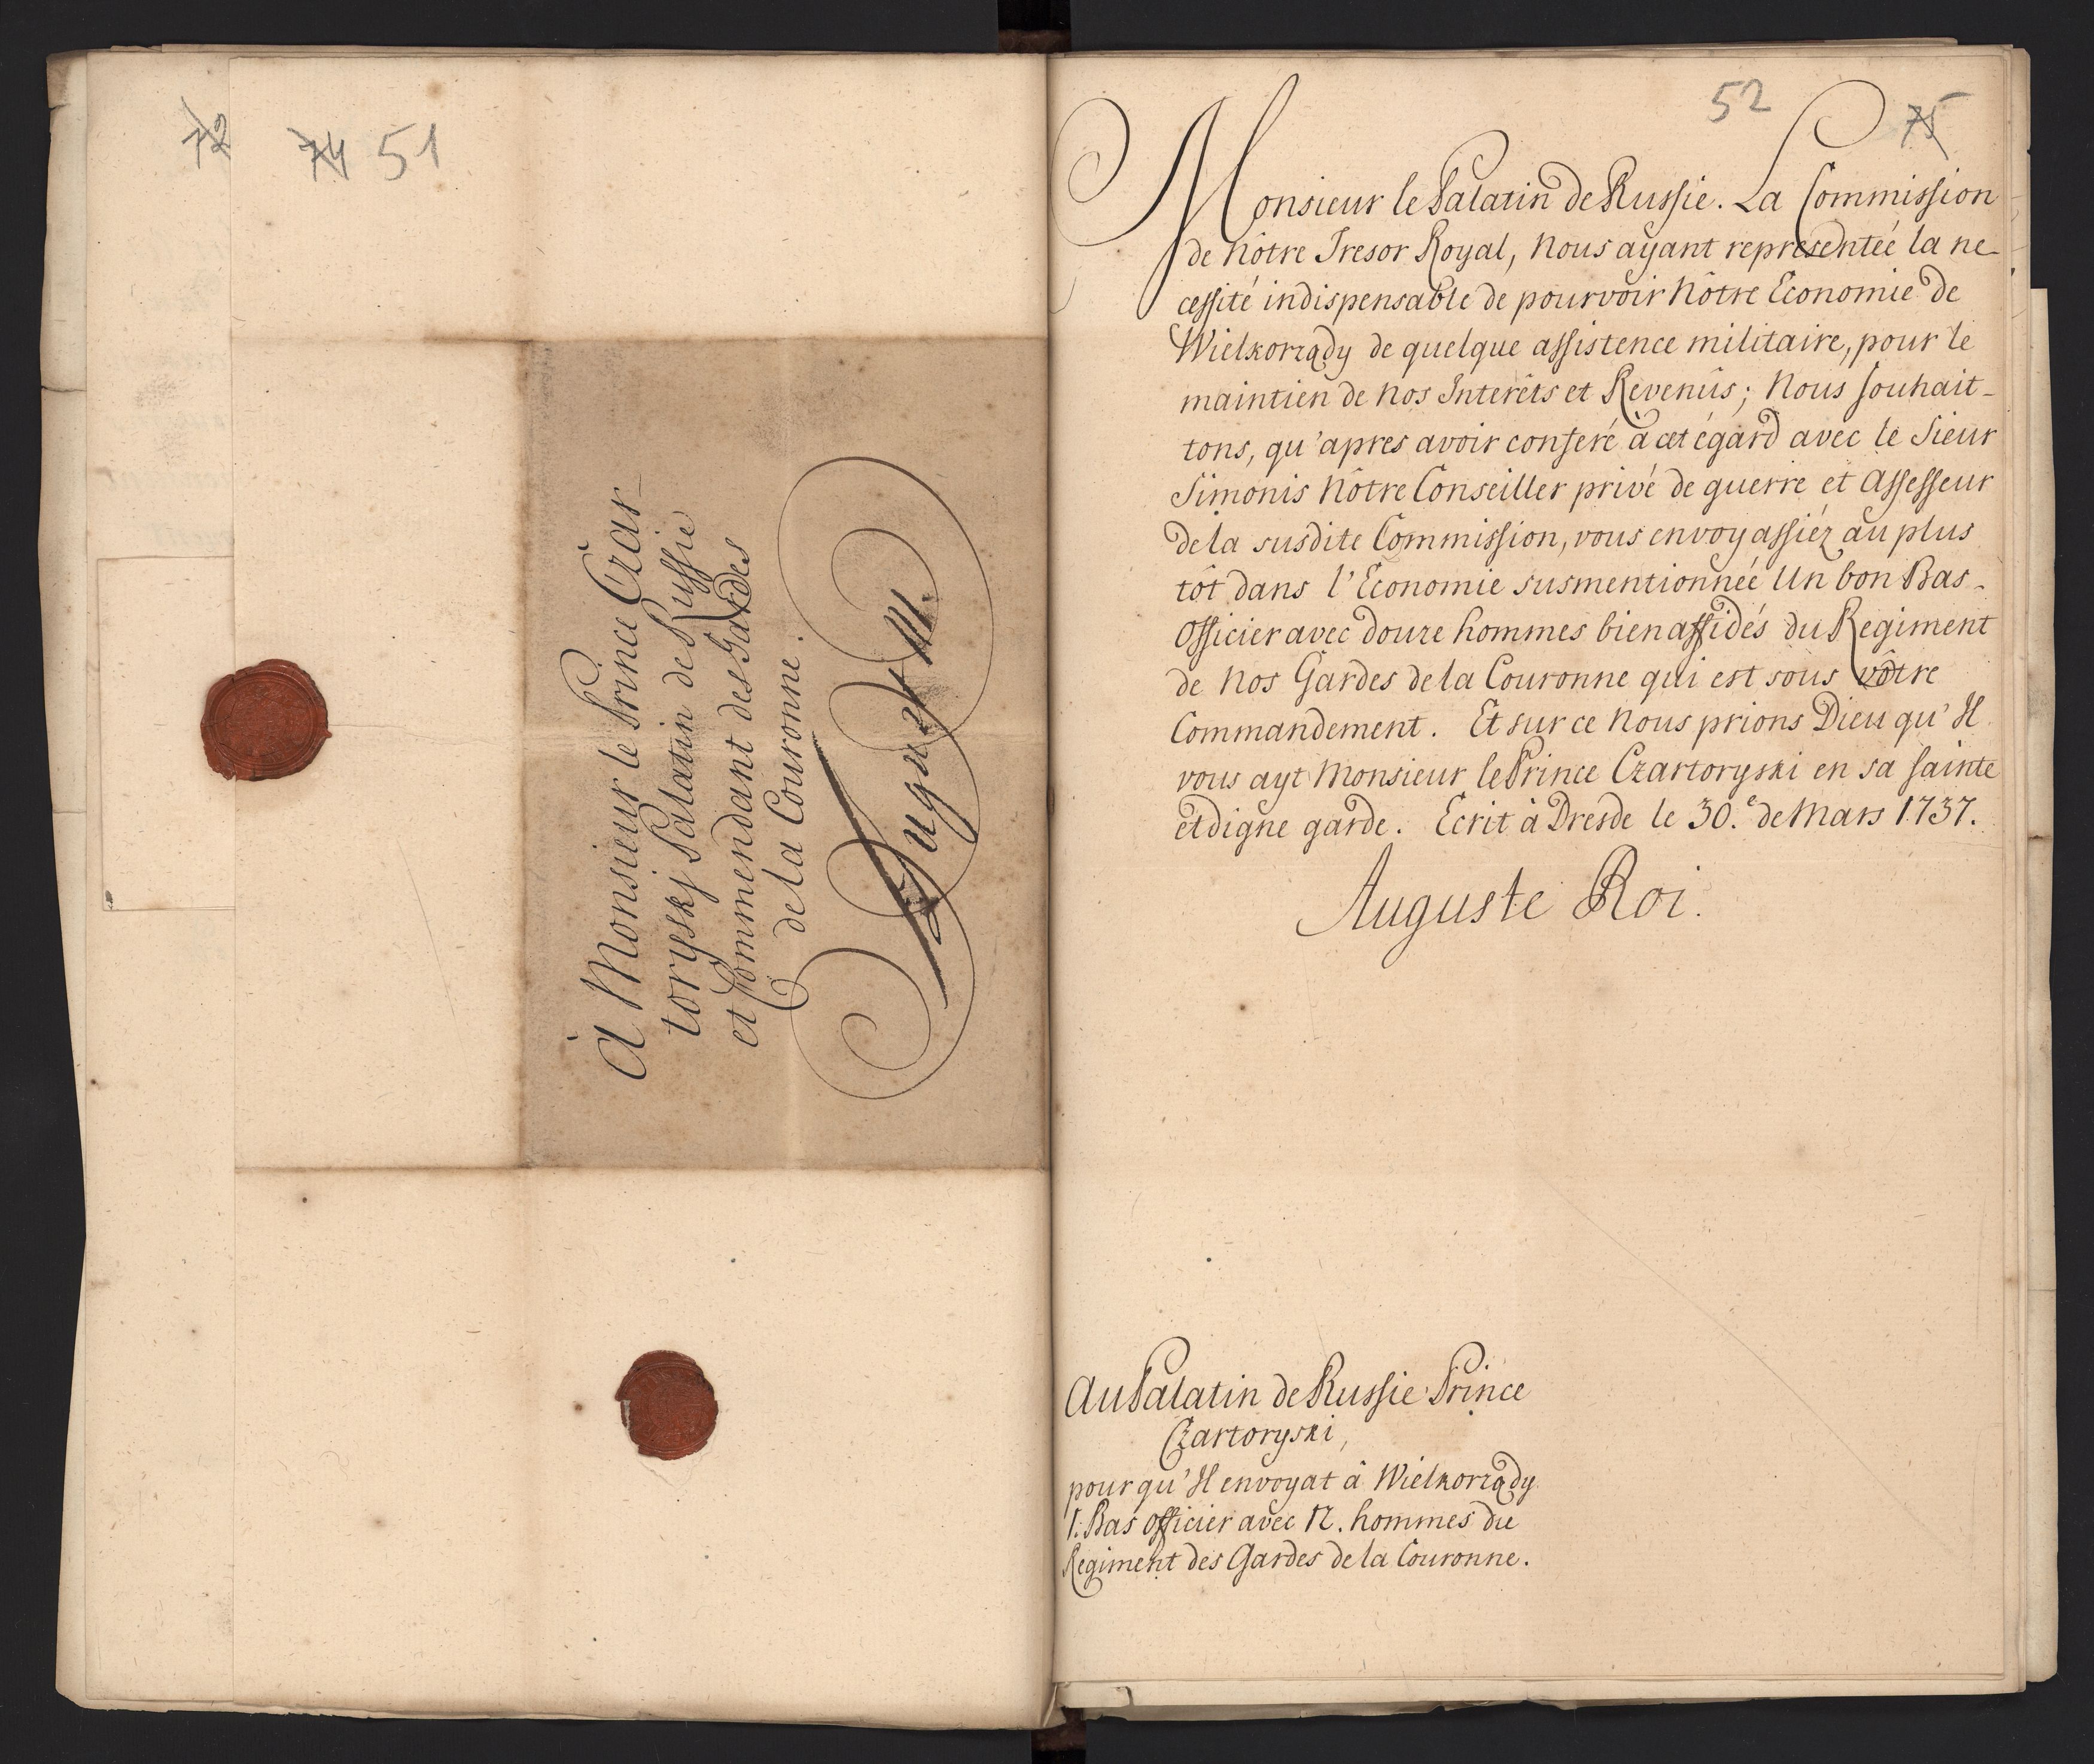 72
74 51
À Monsieur le Prince Czar-
toryskj Palatin de Russie
et Commendant des Gardes
de la Couronne.
August III.
52 75
Monsieur le Palatin de Russie. La Commission
de nôtre Tresor Royal, Nous aÿant representée la ne-
cessité indispensable de pourvoir Nôtre Economie de
Wielkorządy de quelque assistence militaire, pour le
maintien de nos Interêts et Revenûs; Nous souhait-
tons, qu'apres avoir conferé à cet égard avec le Sieur
Simonis Nôtre Conseiller privé de guerre et Assesseur
de la susdite Commission, vous envoyassiéz au plus
tôt dans l'Economie susmentionnée Un bon Bas-
Officier avec douze hommes bien affidés du Regiment
de Nos Gardes de la Couronne qui est sous vôtre
Commandement. Et sur ce Nous prions Dieu qu'Il
vous ayt Monsieur le Prince Czartoryski en sa sainte
et digne garde. Ecrit à Dresde le 30.e de Mars 1737.
Auguste Roi.
Au Palatin de Russie Prince
Czartoryski,
pour qu'Il envoyat à Wielkorządy
1. Bas officier avec 12. hommes du
Regiment des Gardes de la Couronne.